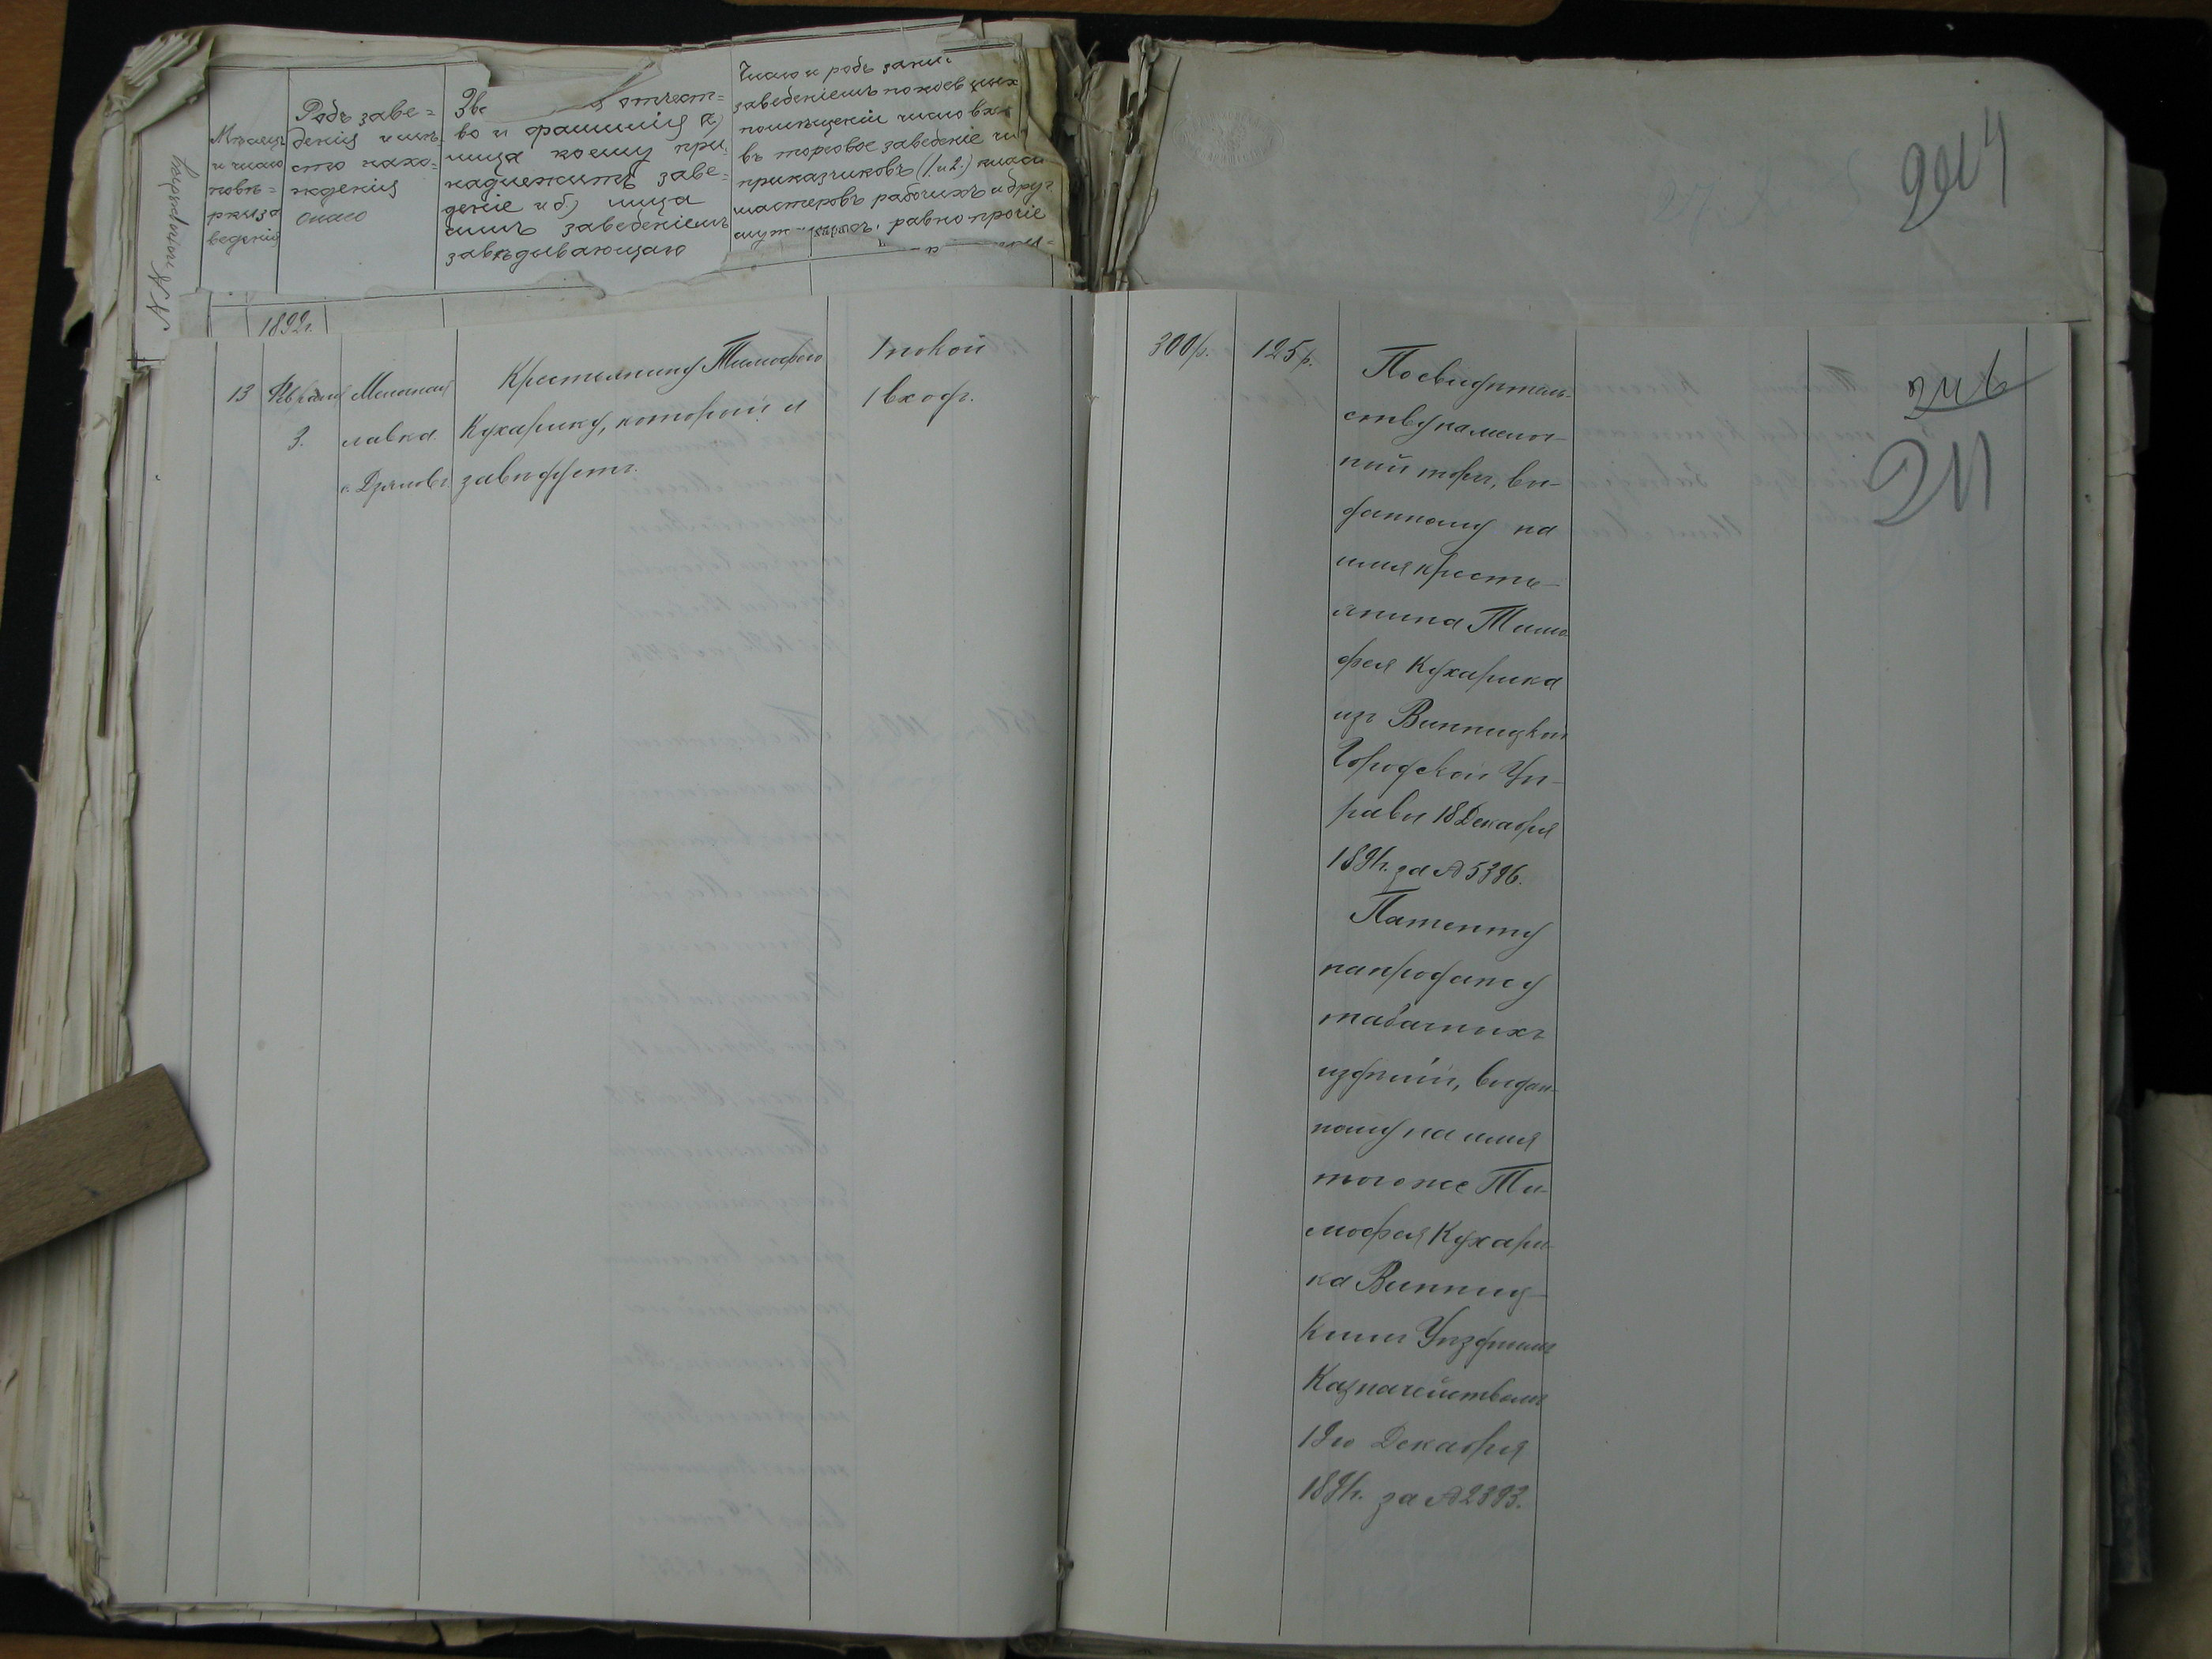 №№ по порядку
Мѣсяцъ
и число
повѣ=
рки за
веденія
Родъ заве=
денія и мѣ=
сто нахо=
жденія
онаго
Зва отчест=
во и фамилія а)
лица коему при=
надлежитъ заве=
деніе и б.) лица
симъ заведеніемъ
завѣдывающаго
Число и родъ зани
заведеніемъ покоевъ
помѣщеній число вхо
въ торговое заведеніе
приказчиковъ (1 и 2.) класа
мастеровъ рабочихъ и друг.
равно прочіе
1892г.
13
Февраля
3.
Мелочная
лавка
с. Дзялов.
Крестьянину Тимофею
Кухарику, который и
завѣдуетъ.
1 покой
1 входъ.
300 р.
125 р.
По свидѣтель-
ству на мелоч-
ной торгъ, вы-
данному на
имя кресть-
янина Тимо
фея Кухарика
изъ Винницкой
Городской Уп-
равы 18 Декабря
1891г. за № 5396.
Патенту
на продажу
табачныхъ
издѣлій, выдан-
ному на имя
того же Ти-
мофея Кухари-
ка Винниц-
кимъ Уѣзднымъ
Казначействомъ
19го Декабря
1891г. за № 2393.
204
211